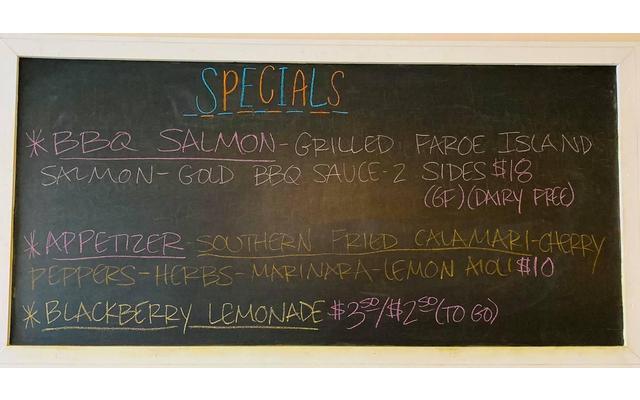 SPECIALS
* BBQ SALMON - GRILLED FAROE ISLAND
SALMON - GOLD BBQ SAUCE - 2 SIDES $18
(GF) (DAIRY FREE)
* APPETIZER - SOUTHERN FRIED CALAMARI - CHERRY
PEPPERS - HERBS - MARINARA - LEMON AIOLI $10
* BLACKBERRY LEMONADE $3.50/$2.50 (TO GO)